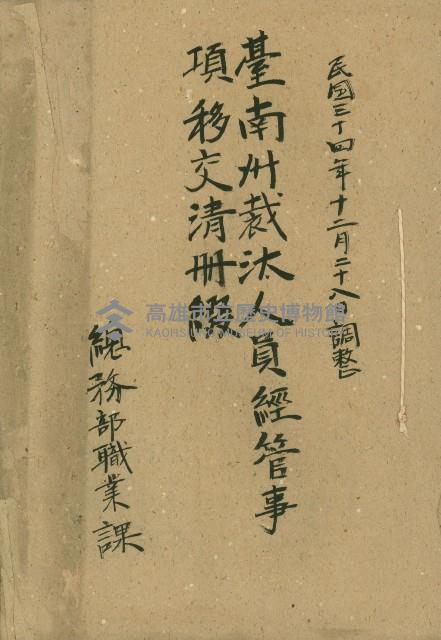 民國三十四年十二月二十八日調整
臺南州裁汰人員經管事
項移交清册綴
總務部職業課
高雄市立歷史博物館
KAOHSIUNG MUSEUM OF HISTORY